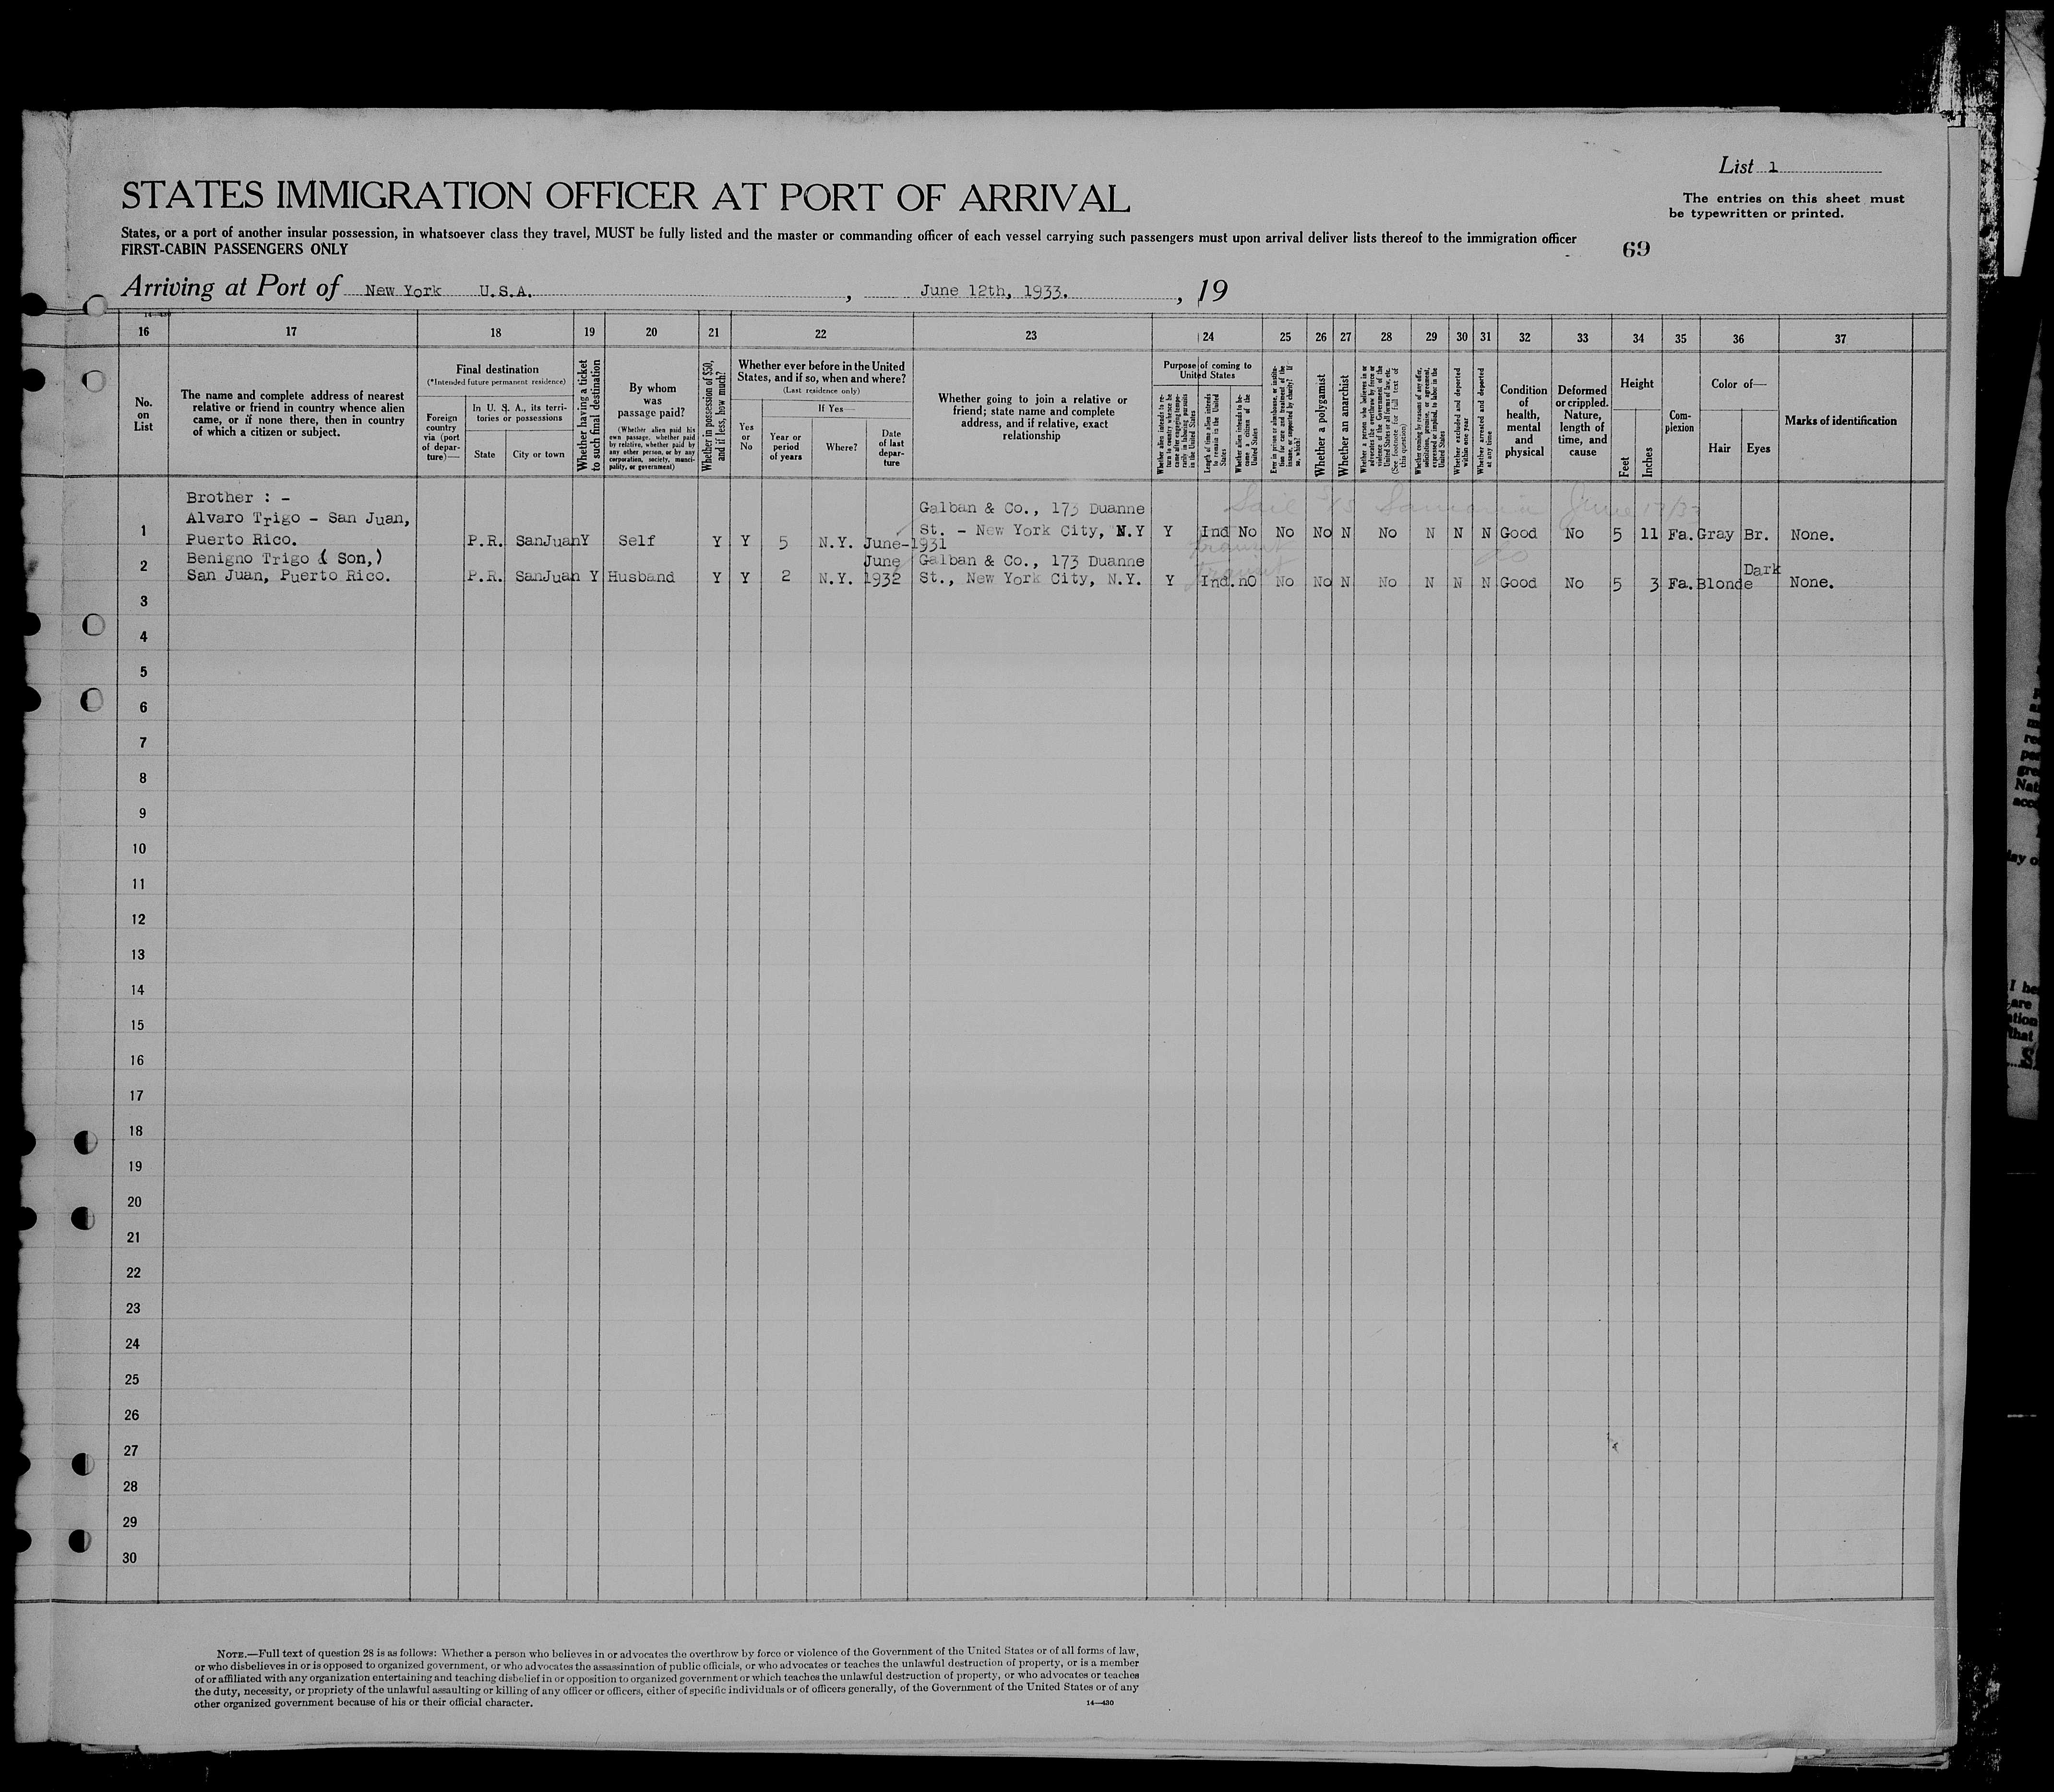 List 1
STATES IMMIGRATION OFFICER AT PORT OF ARRIVAL
The entries on this sheet must
be typewritten or printed.
States, or a port of another insular possession, in whatsoever class they travel, MUST be fully listed and the master or commanding officer of each vessel carrying such passengers must upon arrival deliver lists thereof to the immigration officer
FIRST-CABIN PASSENGERS ONLY
69
Arriving at Port of New York U.S.A. , June 12th, 1933. , 19
16 17 18 19 20 21 22 23 24 25 26 27 28 29 30 31 32 33 34 35 36 37
No.
on
List
The name and complete address of nearest
relative or friend in country whence alien
came, or if none there, then in country
of which a citizen or subject.
Final destination
(*Intended future permanent residence)
Foreign
country
via (port
of depar-
ture)—
In U. S. A., its terri-
tories or possessions
State
City or town
Whether having a ticket
to such final destination
By whom
was
passage paid?
(Whether alien paid his
own passage, whether paid
by relative, whether paid by
any other person, or by any
corporation, society, munici-
pality, or government)
Whether in possession of $50,
and if less, how much?
Whether ever before in the United
States, and if so, when and where?
(Last residence only)
Yes
or
No
If Yes—
Year or
period
of years
Where?
Date
of last
depar-
ture
Whether going to join a relative or
friend; state name and complete
address, and if relative, exact
relationship
Purpose of coming to
United States
Whether alien intends to re-
turn to country whence he
came after engaging tempo-
rarily in laboring pursuits
in the United States
Length of time alien intends
to remain in the United
States
Whether alien intends to be-
come a citizen of the
United States
Ever in prison or almshouse, or institu-
tion for care and treatment of the
insane, or supported by charity? If
so, which?
Whether a polygamist
Whether an anarchist
Whether a person who believes in or
advocates the overthrow by force or
violence of the Government of the
United States or all forms of law, etc.
(See footnote for full text of
this question)
Whether coming by reasons of any offer,
solicitation, promise, or agreement,
expressed or implied, to labor in the
United States
Whether excluded and deported
within one year
Whether arrested and deported
at any time
Condition
of
health,
mental
and
physical
Deformed
or crippled.
Nature,
length of
time, and
cause
Height
Feet
Inches
Com-
plexion
Color of—
Hair
Eyes
Marks of identification
Brother : -
Alvaro Trigo - San Juan,
Galban & Co., 173 Duanne
Sail June 17/33
1 Puerto Rico. P.R. SanJuan Y Self Y Y 5 N.Y. June-1931 St. - New York City, N.Y Y Ind No No No N No N N N Good No 5 11 Fa. Gray Br. None.
Transit
Benigno Trigo ( Son,) June Galban & Co., 173 Duanne
do
Transit
Dark
2 San Juan, Puerto Rico. P.R. SanJuan Y Husband Y Y 2 N.Y. 1932 St., New York City, N.Y. Y Ind. nO No No N No N N N Good No 5 3 Fa. Blonde None.
3
4
5
6
7
8
9
10
11
12
13
14
15
16
17
18
19
20
21
22
23
24
25
26
27
28
29
30
NOTE.—Full text of question 28 is as follows: Whether a person who believes in or advocates the overthrow by force or violence of the Government of the United States or of all forms of law,
or who disbelieves in or is opposed to organized government, or who advocates the assassination of public officials, or who advocates or teaches the unlawful destruction of property, or is a member
of or affiliated with any organization entertaining and teaching disbelief in or opposition to organized government or which teaches the unlawful destruction of property, or who advocates or teaches
the duty, necessity, or propriety of the unlawful assaulting or killing of any officer or officers, either of specific individuals or of officers generally, of the Government of the United States or of any
other organized government because of his or their official character.
14—430